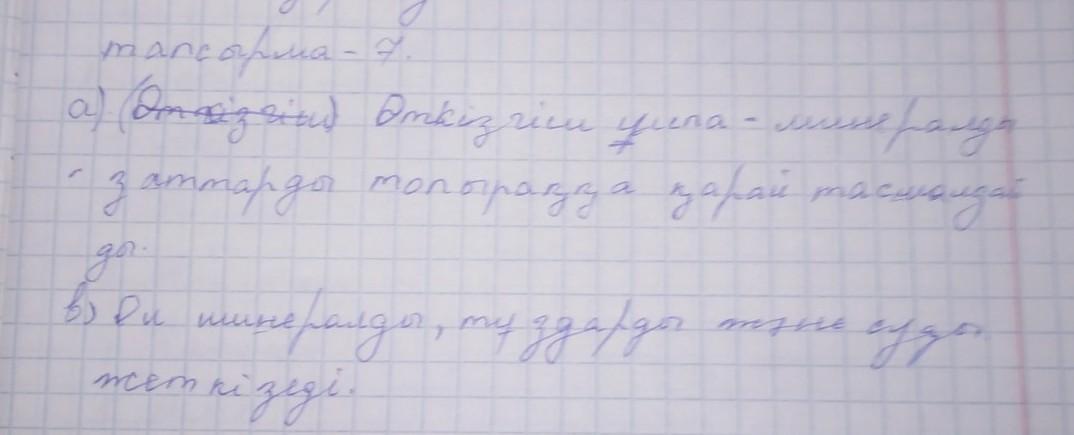 тапсырма - 7.
а) (Өткізгіш) Өткізгіш ұлпа - минералды
заттарды топыраққа қарай тасмалдай
ды.
в) Ол минералды, тұздарды және суды
жеткізеді.